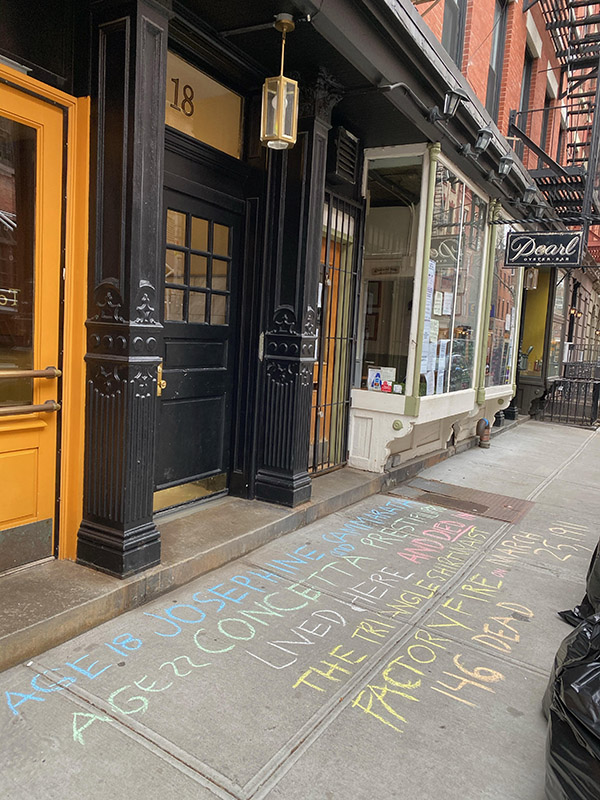 18
Pearl
OYSTER BAR
AGE 18 JOSEPHINE CAMMARATA
AGE 22 CONCETTA
LIVED HERE AND DIED IN
THE TRIANGLE SHIRTWAIST
FACTORY FIRE ON MARCH
25, 1911
146 DEAD